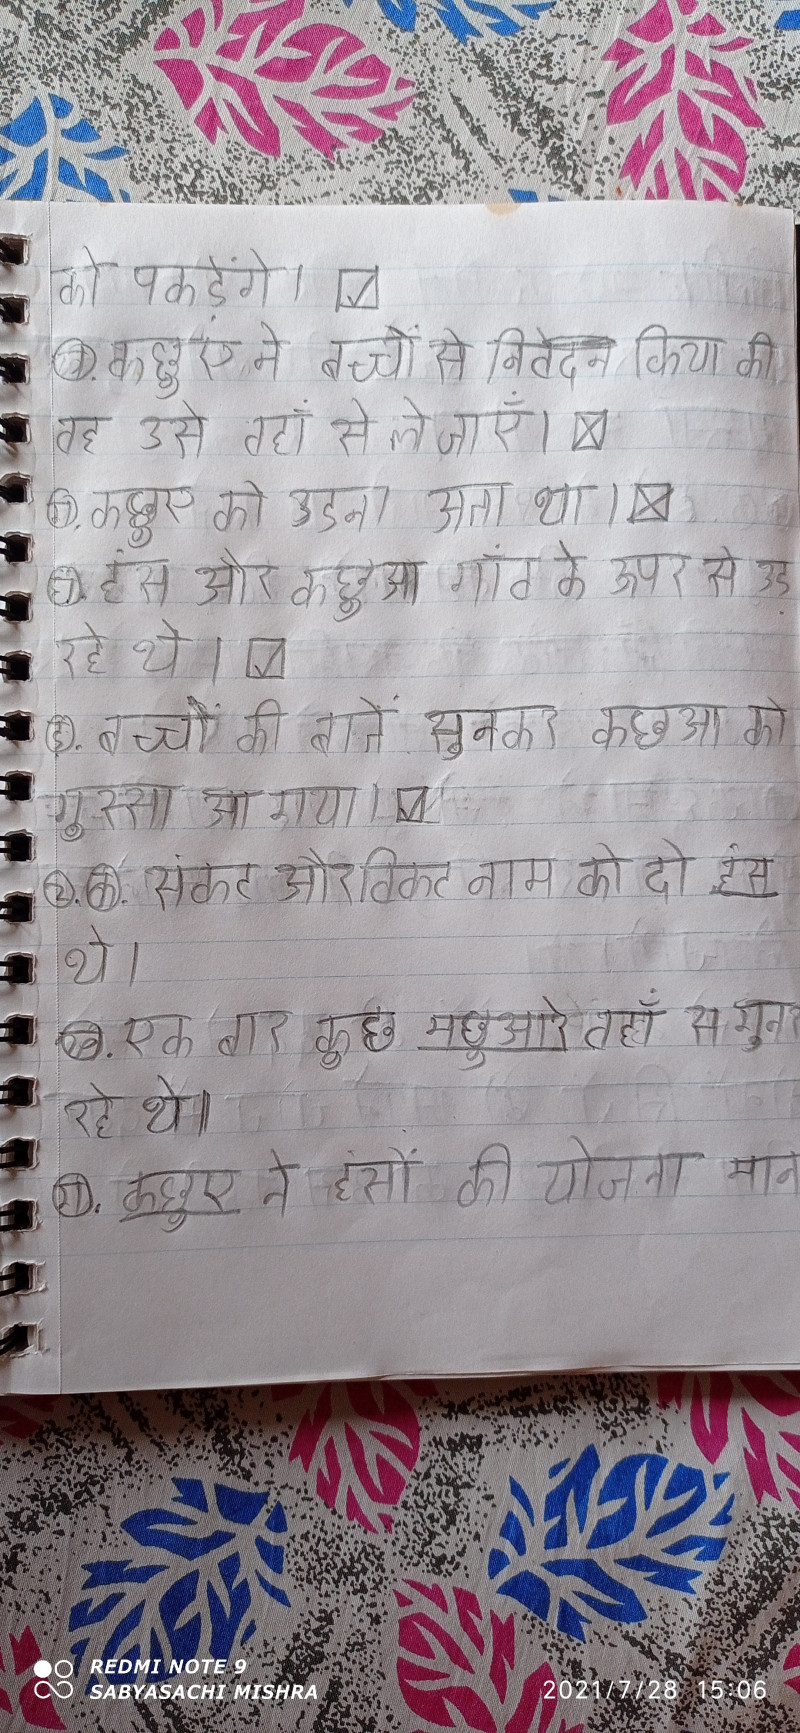 को पकड़ेंगे। ☑
ख. कछुए ने बच्चों से निवेदन किया की
वह उसे वहाँ से ले जाएँ। ☒
ग. कछुए को उडना अता था। ☒
घ. हंस और कछुआ गांव के ऊपर से उड़
रहे थे। ☑
ङ. बच्चों की बातें सुनकर कछुआ को
गुस्सा आ गया। ☑
२. क. संकट और विकट नाम को दो हंस
थे।
ख. एक बार कुछ मछुआरे वहाँ स गुजर
रहे थे॥
ग. कछुए ने हंसों की योजना मान
REDMI NOTE 9
SABYASACHI MISHRA
2021/7/28 15:06